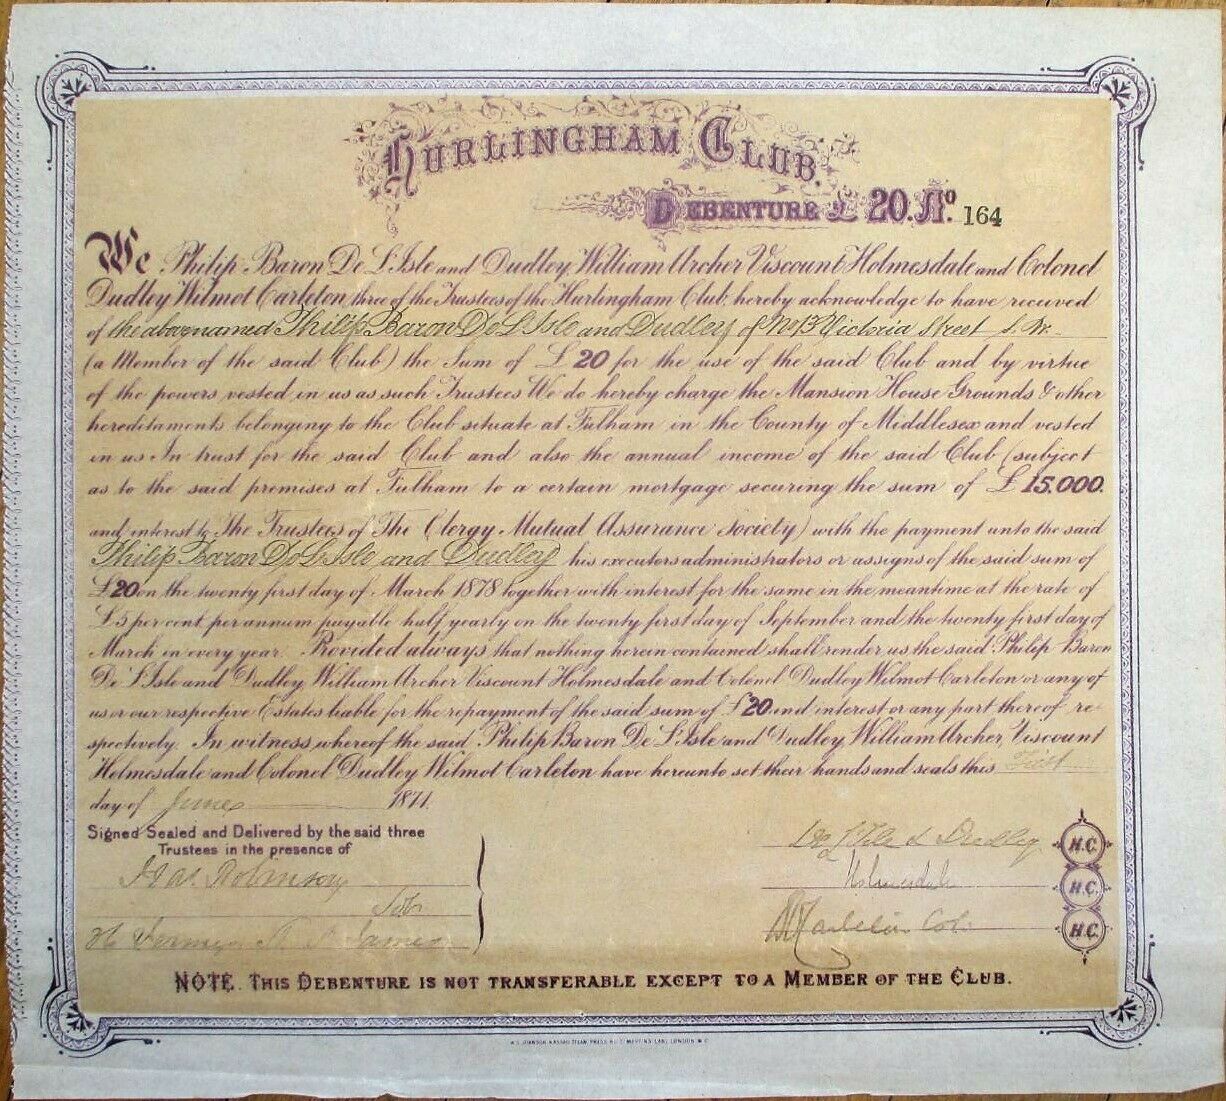 HURLINGHAM CLUB.
DEBENTURE £ 20. No. 164
We Philip Baron De L'Isle and Dudley, William Archer Viscount Holmesdale and Colonel
Dudley Wilmot Carleton, three of the Trustees of the Hurlingham Club, hereby acknowledge to have received
of the abovenamed Philip Baron De L'Isle and Dudley of No 13 Victoria Street S. W.
(a Member of the said Club) the Sum of £ 20 for the use of the said Club and by virtue
of the powers vested in us as such Trustees We do hereby charge the Mansion House Grounds & other
hereditaments belonging to the Club situate at Fulham in the County of Middlesex and vested
in us In trust for the said Club and also the annual income of the said Club (subject
as to the said premises at Fulham to a certain mortgage securing the sum of £ 15.000.
and interest to The Trustees of The Clergy Mutual Assurance Society) with the payment unto the said
Philip Baron De L'Isle and Dudley his executors administrators or assigns of the said sum of
£20 on the twenty first day of March 1878 together with interest for the same in the meantime at the rate of
£5 per cent. per annum payable half yearly on the twenty first day of September and the twenty first day of
March in every year. Provided always that nothing herein contained shall render us the said Philip Baron
De L'Isle and Dudley, William Archer Viscount Holmesdale and Colonel Dudley Wilmot Carleton or any of
us or our respective Estates liable for the repayment of the said sum of £20 and interest or any part thereof re-
spectively. In witness whereof the said Philip Baron De L'Isle and Dudley, William Archer, Viscount
Holmesdale and Colonel Dudley Wilmot Carleton have hereunto set their hands and seals this First
day of June 1874.
Signed Sealed and Delivered by the said three
Trustees in the presence of
De L'Isle & Dudley H.C.
Robinson
Holmesdale H.C.
Carleton Col. H.C.
St James
NOTE. THIS DEBENTURE IS NOT TRANSFERABLE EXCEPT TO A MEMBER OF THE CLUB.